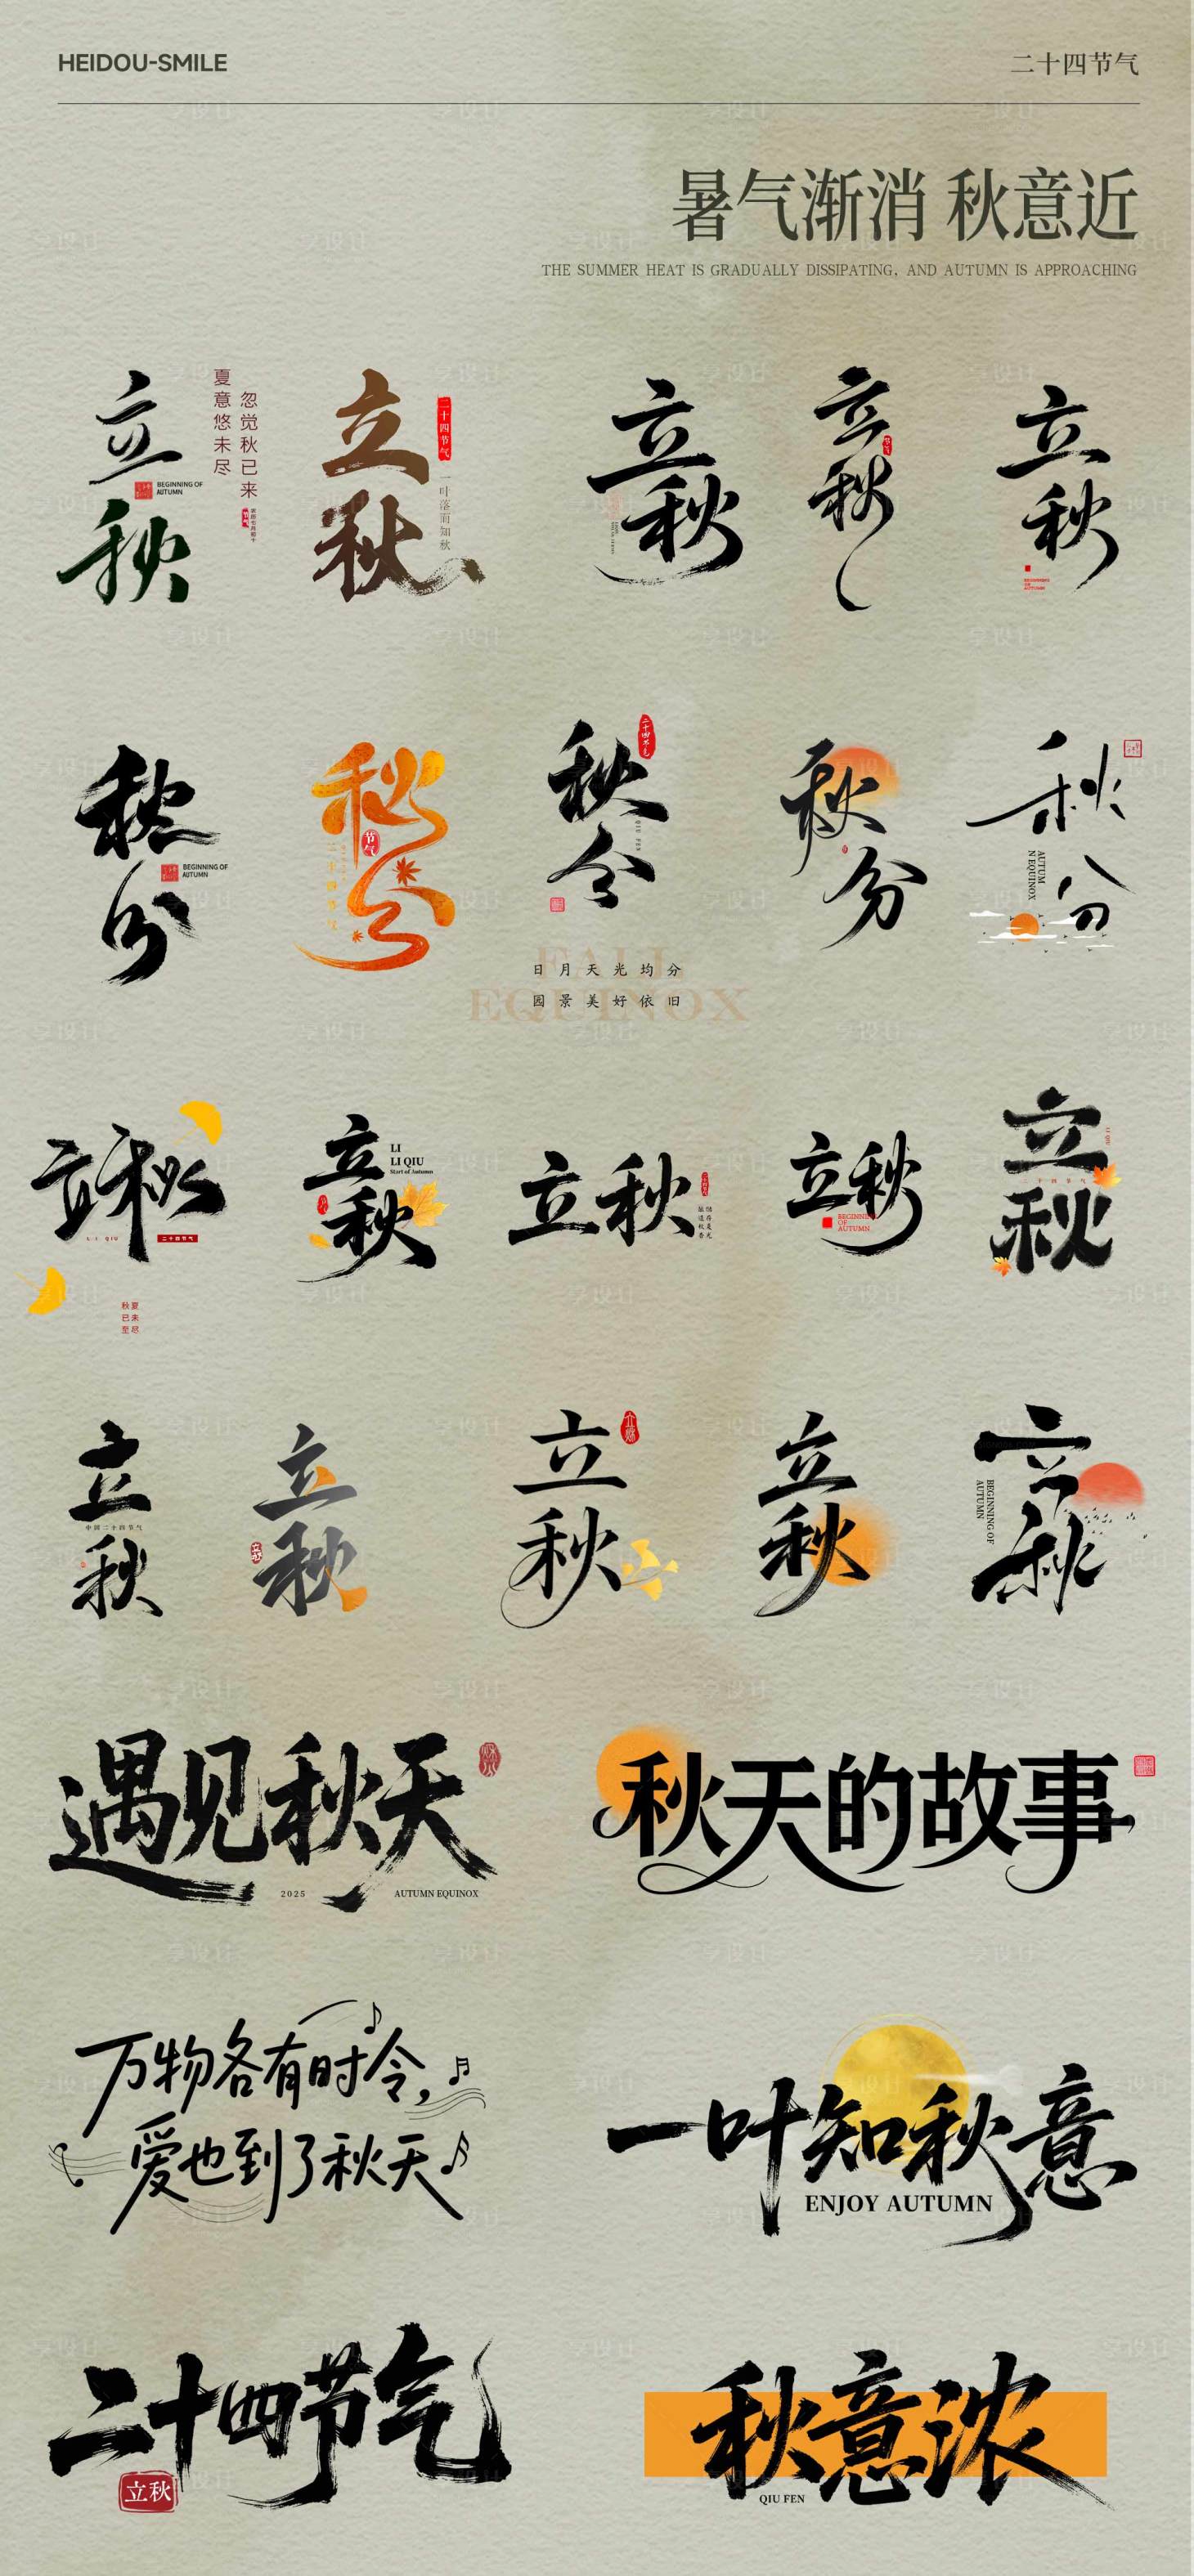 HEIDOU-SMILE
二十四节气
暑气渐消 秋意近
THE SUMMER HEAT IS GRADUALLY DISSIPATING, AND AUTUMN IS APPROACHING
立秋
忽觉秋已来
夏意悠未尽
BEGINNING OF
AUTUMN
立秋
二十四节气
一叶落而知秋
立秋
立秋
节气
立秋
BEGINNING
OF
AUTUMN
秋分
BEGINNING OF
AUTUMN
秋分
节气
秋分
二十四节气
QIU FEN
FALL
EQUINOX
日月天光均分
园景美好依旧
秋分
秋分
AUTUM
N EQUINOX
立秋
LI QIU
二十四节气
夏未尽
秋已至
立秋
LI
LI QIU
Start of Autumn
立秋
立秋
BEGINNING
OF
AUTUMN
立秋
LI QIU
二十四节气
立秋
中国二十四节气
立秋
立秋
立秋
立秋
立秋
BEGINNING OF
AUTUMN
遇见秋天
2025
AUTUMN EQUINOX
秋天的故事
万物各有时令,
爱也到了秋天
一叶知秋意
ENJOY AUTUMN
二十四节气
立秋
秋意浓
QIU FEN